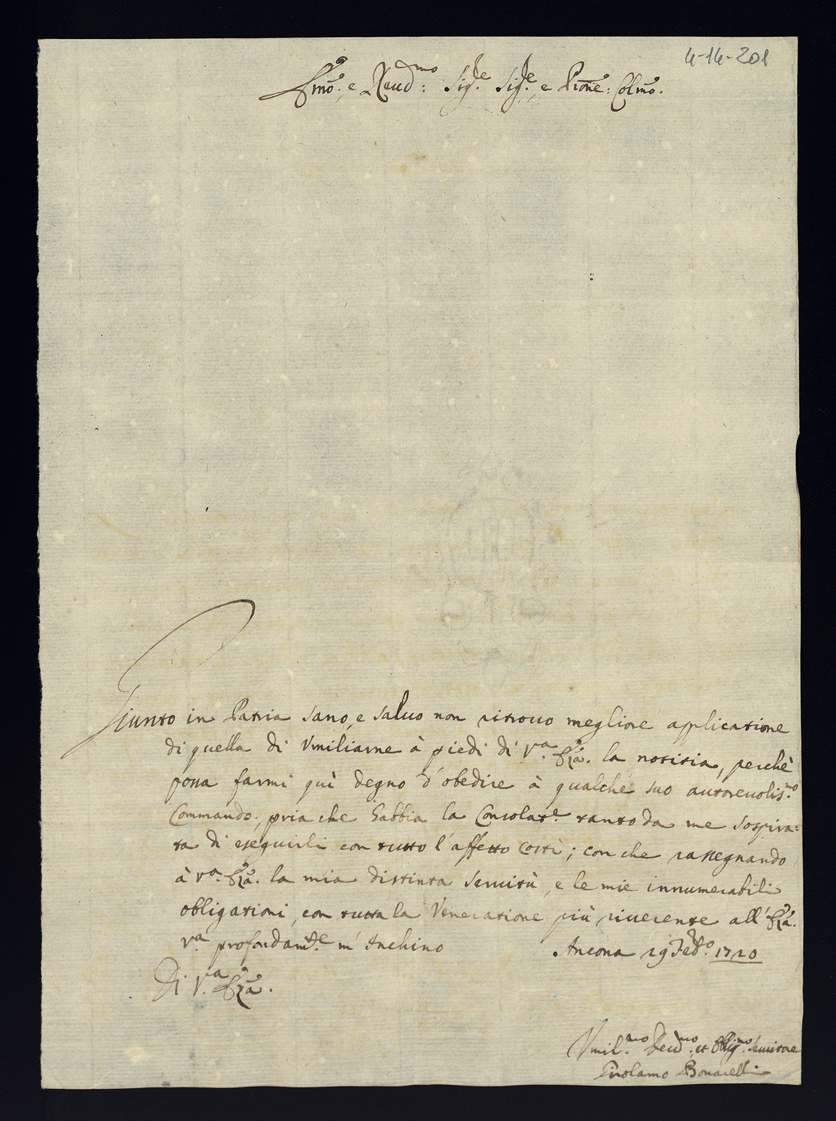 4-14-201
Emo. e Reud.mo: Sig.re Sig.re, e Prone: Colmo.
Giunto in Patria sano, e salvo non ritrovo megliore applicatione
di quella di Vmiliarne à piedi di V.ra Eza. la notitia, perchè
possa farmi quì degno d'obedire à qualche suo autoreuolis.mo
Commando, pria che habbia la Consolat.ne tanto da me sospira=
ta di eseguirli con tutto l'affetto costì; con che rassegnando
à V.ra Eza. la mia distinta seruitù, e le mie innumerabili
obligationi, con tutta la Veneratione più riuerente all'Eza.
V.ra profondam.te m'Inchino Ancona 29 Feb.o 1720
Di V.ra Eza.
Vmil.mo Deud.mo, et Oblig.mo Seruitore
Girolamo Bonarelli